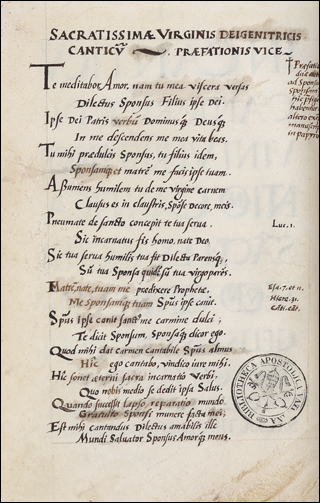 SACRATISSIMÆ VIRGINIS DEIGENITRICIS
CANTICV̄ PRÆFATIONIS VICE
Te meditabor, Amor, nam tu mea viscera versas
Dilectus Sponsus Filius ipse Dei.
Ipse Dei Patris verbū Dominusq; Deusq;
In me descendens me mea vita beas.
Tu mihi prædulcis Sponsus, tu filius idem,
Sponsamq; et matrē me facis ipse tuam.
Assumens humilem tu de me virgine carnem
Clausus es in claustris, Spōse Decore, meis.
Pneumate de sancto concepit te tua serva
Sic incarnatus fis homo, nate Deo.
Sic tua serva humilis tua fit Dilecte Parensq;,
Sū tua Sponsa quidē, sū tua virgo parēs.
Matrē, nate, tuam me prædixere Prophetæ,
Me Sponsamq; tuam Spūs ipse canit.
Spūs ipse canit sanctꝰ me carmine dulci;
Te dicit Sponsum, Sponsaq; dicor ego.
Quod mihi dat carmen cantabile Spūs almus
Hic ego cantabo, vindico iure mihi.
Hic sonet æterni sacra incarnatio Verbi,
Quo nobis medio se dedit ipsa Salus.
Quando successit lapso reparatio mundo
Gratuito Sponsi munere facta mei;
Est mihi cantandus Dilectus amabilis ille
Mundi Salvator Sponsus Amorq; meus.
† Præfatio
ad Sponsū
sponsum
hic
habendū
altero
manuscrip
in papyro
Luc. 1.
Esa. 7. et 11.
Hiere. 31.
Cāt. cāt.
BIBLIOTHECA APOSTOLICA VATICANA